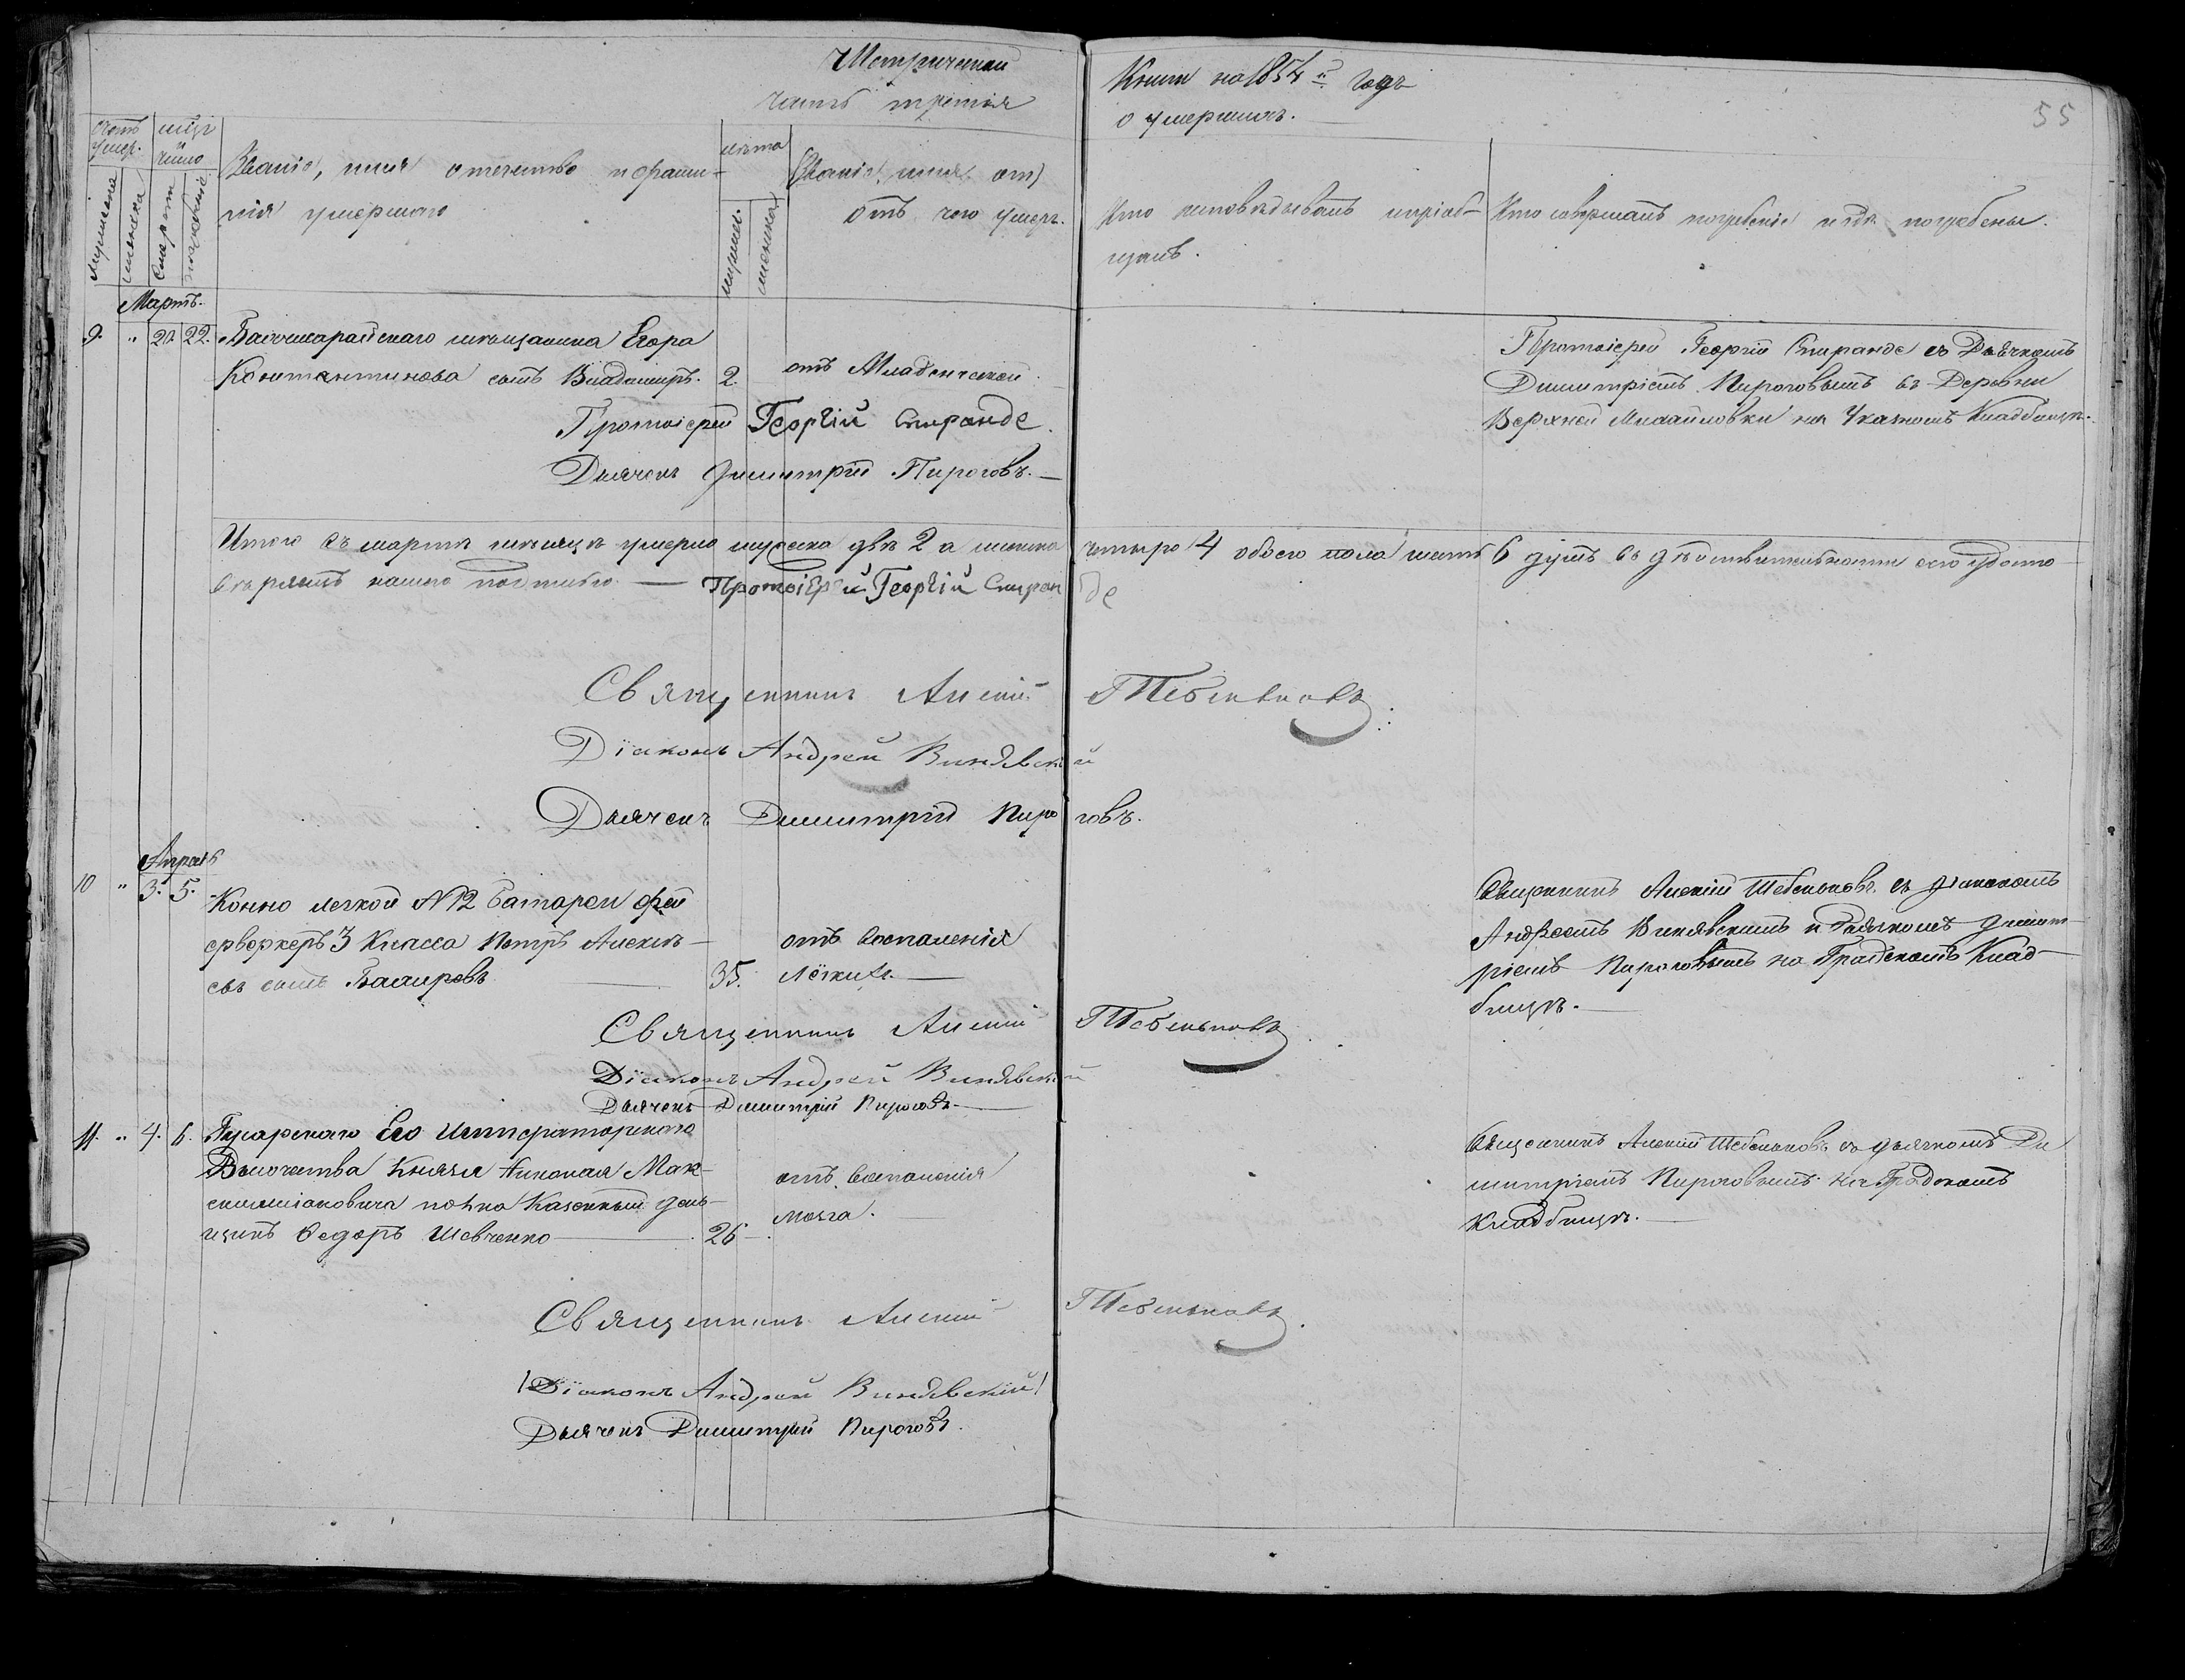 Метрической
Книги на 1854й Годъ
часть третія
о умершихъ.
55
счетъ умер.
мѣсц и число
Званіе, имя отечество и фами-
лія умершаго
лѣта
отъ чего умеръ.
Кто исповѣдывалъ и пріоб-
щалъ.
Кто совершалъ погребеніе и гдѣ погребены.
мужеска
женска
смерти
погребенія
мужеск.
женска
Мартъ.
9. " 20 22. Бахчисарайскаго мѣщанина Егора
Константинова сынъ Владимиръ. 2. отъ Младенческой
Протоіерей Георгій Спиранде съ Дьячкомъ
Димитріемъ Пироговымъ въ Деревни
Верхней Михайловки на Указномъ Кладбищѣ.
Протоіерей Георгій Спиранде.
Дьячекъ Димитрій Пироговъ.
Итого въ мартѣ мѣсяцѣ умерло мужеска двѣ 2 а женска четыре 4 обоего пола шесть 6 душъ въ дѣйствительности сего удосто
вѣряемъ нашего подписью Протоіерей Георгій Спиранде
Священникъ Алексій Шебельковъ
Діаконъ Андрей Винявскій
Дьячекъ Димитрій Пироговъ.
Апрель
10 " 3. 5. Конно легкой №12 Батареи фей
ерверкеръ 3 Класса Петръ Алексѣ-
евъ сынъ Башировъ 35. отъ воспаленія
лёгкихъ.
Священникъ Алексій Шебельковъ съ діакономъ
Андреемъ Винявскимъ и Дьячкомъ Димит-
ріемъ Пироговымъ на Градскомъ Клад-
бищѣ.
Священникъ Алексій Шебельковъ
Діаконъ Андрей Винявскій
Дьячекъ Димитрій Пироговъ
11. " 4. 6. Гусарскаго Его Императорскаго
Высочества Князя Николая Мак-
симиліановича полка Казенный день-
щикъ Федоръ Шевченко 26 отъ воспаленія
мозга.
Священникъ Алексій Шебельковъ съ дьячкомъ Ди
митріемъ Пироговымъ на Градскомъ
Кладбищѣ.
Священникъ Алексій Шебельковъ
Діаконъ Андрей Винявскій
Дьячекъ Димитрій Пироговъ.